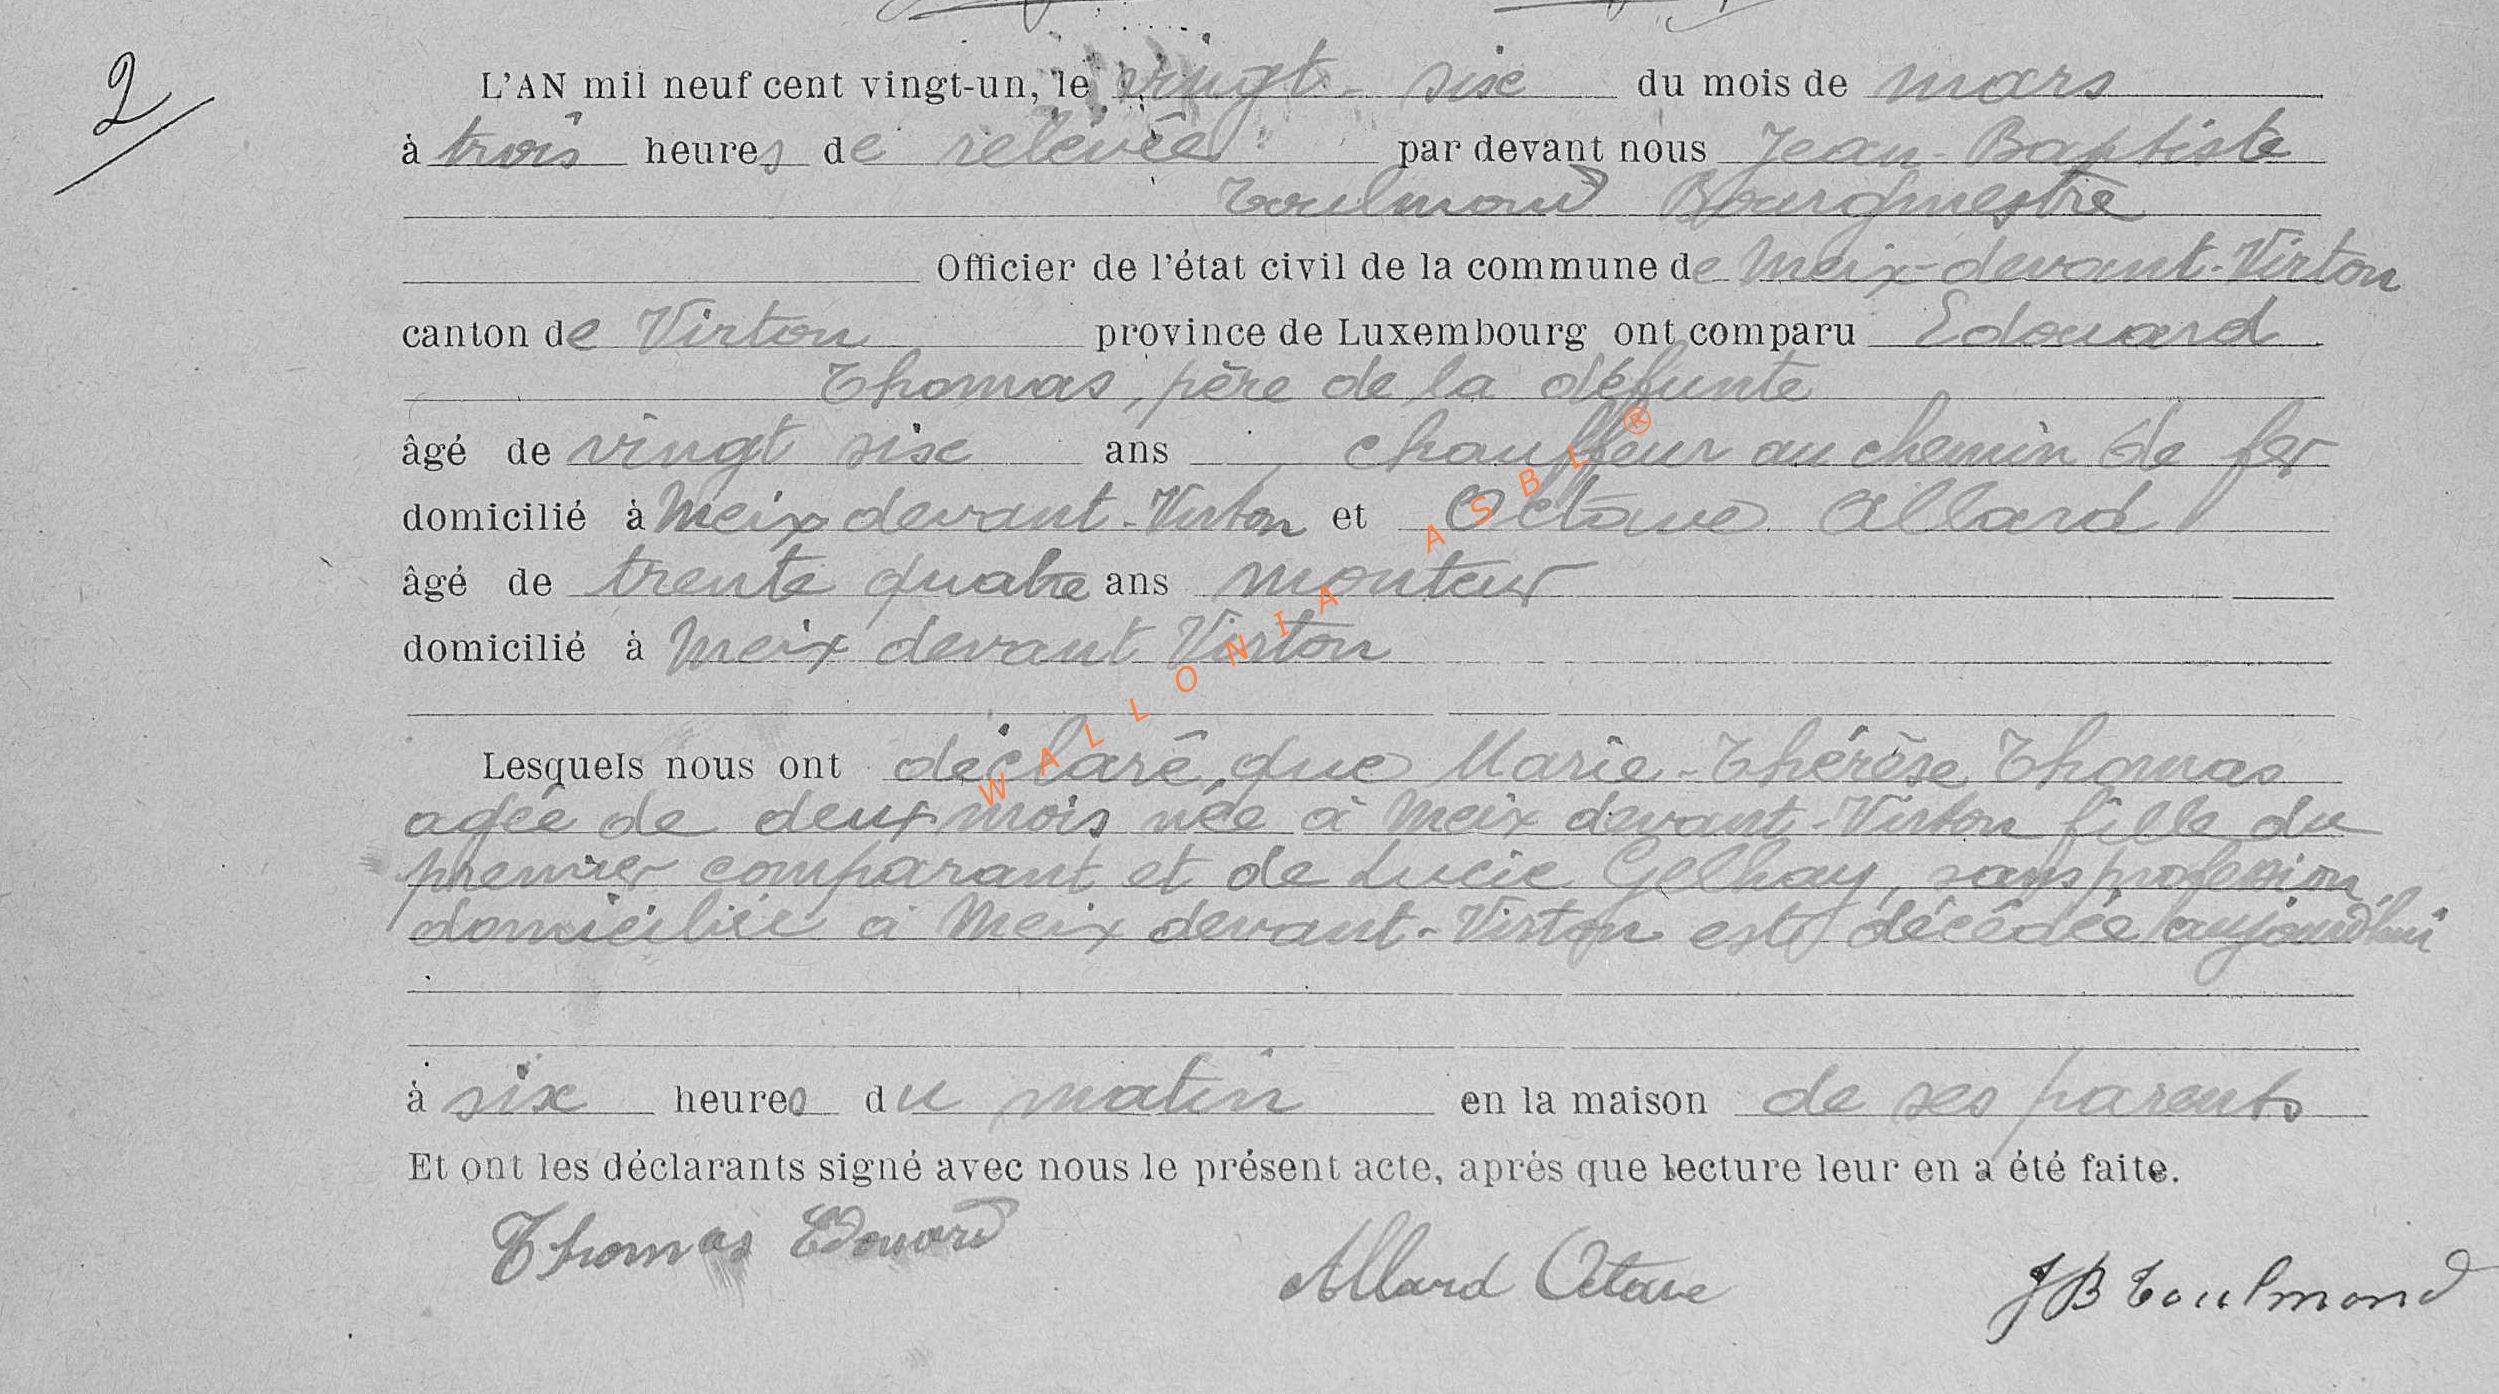 2
L'AN mil neuf cent vingt-un, le vingt-six du mois de mars
à trois heures de relevée par devant nous Jean-Baptiste
Toulmond Bourgmestre
Officier de l'état civil de la commune de Meix-devant-Virton
canton de Virton province de Luxembourg ont comparu Edouard
Thomas, père de la défunte
âgé de vingt six ans chauffeur au chemin de fer
domicilié à Meix devant-Virton et Octave Allard
âgé de trente quatre ans monteur
domicilié à Meix devant Virton
Lesquels nous ont déclaré, que Marie-Thérèse Thomas
agée de deux mois née à Meix devant-Virton fille du
premier comparant et de Lucie Gelhay, sans profession
domiciliée à Meix devant-Virton est décédée aujourd'hui
à six heures du matin en la maison de ses parents
Et ont les déclarants signé avec nous le présent acte, après que lecture leur en a été faite.
Thomas Edouard
Allard Octave
JB Toulmond
WALLONIA ASBL ®